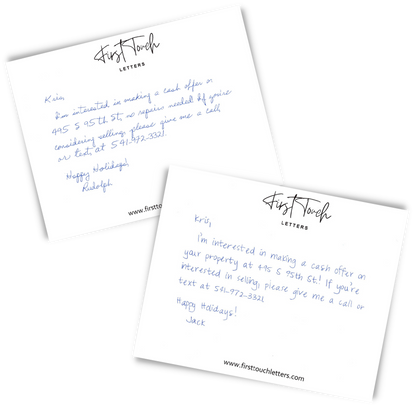 First Touch
LETTERS
Kris,
I'm interested in making a cash offer on
495 S 95th St, no repairs needed. If you're
considering selling, please give me a call
or text at 541-972-3321.
Happy Holidays!
Rudolph
www.firstto
First Touch
LETTERS
Kris,
I'm interested in making a cash offer on
your property at 495 S 95th St.! If you're
interested in selling, please give me a call or
text at 541-972-3321
Happy Holidays!
Jack
www.firsttouchletters.com